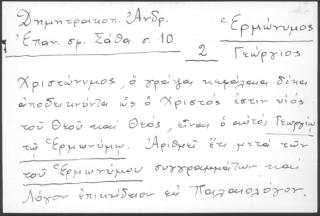 Δημητρακοπ. Ἀνδρ.
Ἐπαν. σμ. Σάθα σ. 10
2
Ἑρμώνυμος
Γεώργιος
Χριστώνυμος, ὁ γράψας κεφάλαια δέκα
ἀποδεικνύντα ὡς ὁ Χριστός ἐστιν υἱός
τοῦ Θεοῦ καὶ Θεός, εἶναι ὁ αὐτός Γεωργίῳ
τῷ Ἑρμωνύμῳ. Ἀριθμεῖ ἔτι μετὰ τῶν
τοῦ Ἑρμωνύμου συγγραμμάτων καὶ
Λόγον ἐπικήδειον εἰς Παλαιολόγον.